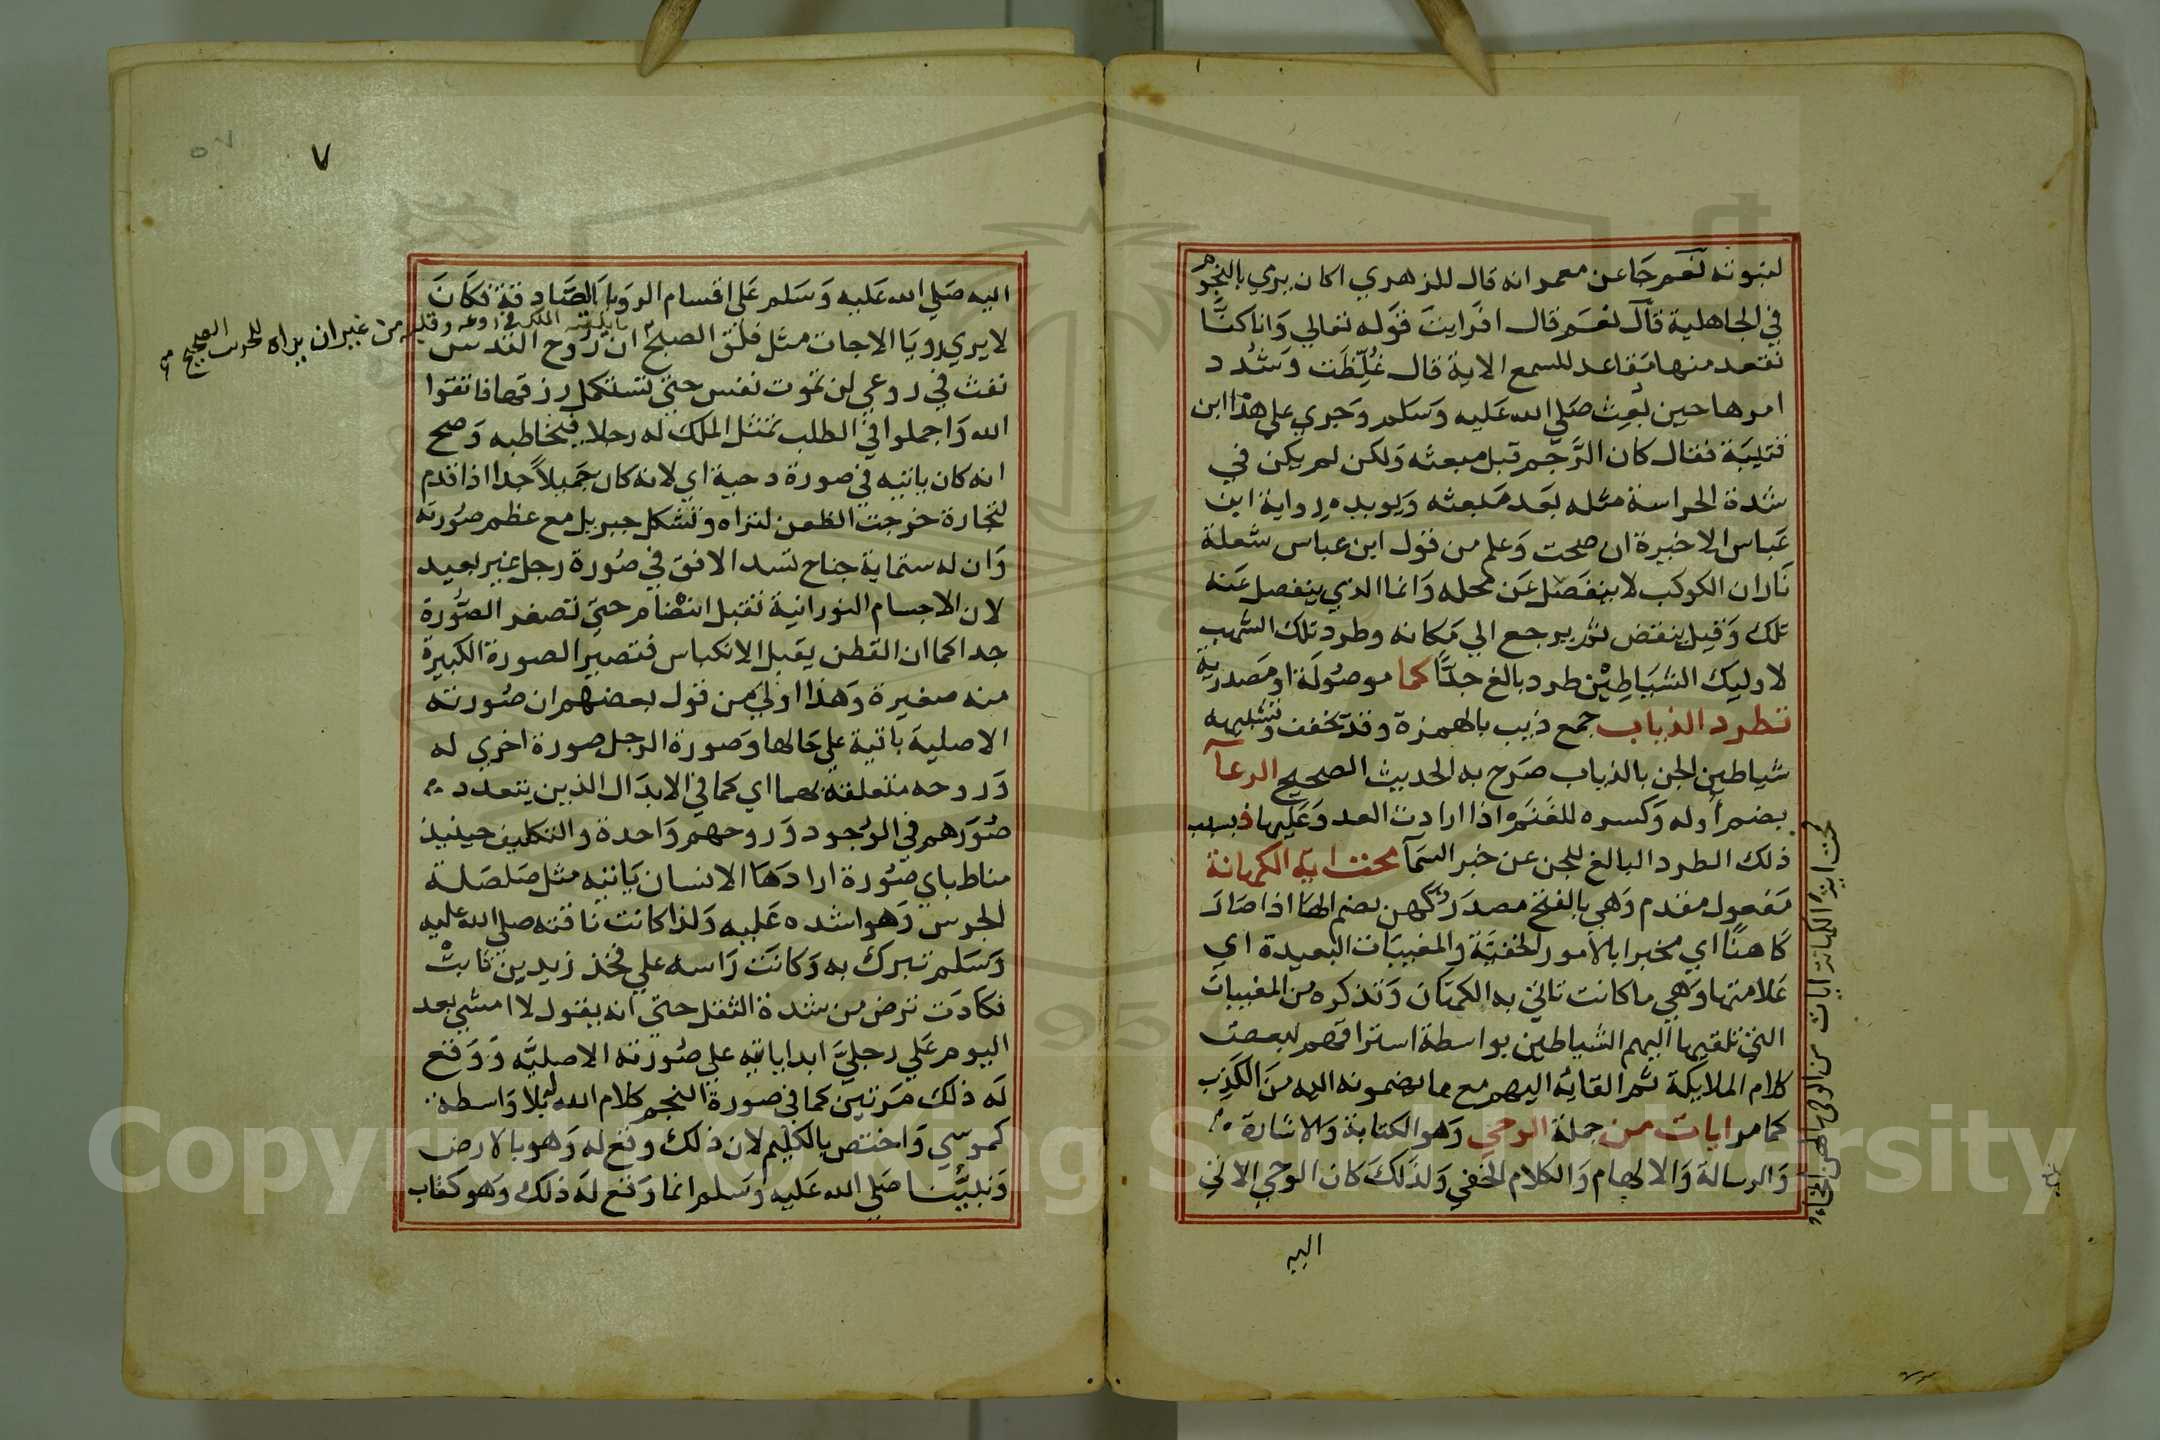 لنبوته نعم جا عن معمر انه قال للزهري اكان يرمي بالنجوم
في الجاهلية قال نعم قال افرايت قوله تعالي وانا كنا
نقعد منها مقاعد للسمع الاية قال غُلِّظَت وشدد
امرها حين بُعِث صَلي الله عَليه وَسَلم وَجري علي هذا ابن
قتيبَة فقال كان الرَّجم قبل مبعثه وَلكن لم يكن في
شدة الحراسة مثله بعَد مَبعثه وَيويده رواية ابن
عَباس الاخيرة ان صحت وَعلم من قول ابن عباس شعلة
نَار ان الكوكب لا ينفَصَل عَن محله وَانما الذي ينفصل عَنه
تلك وَقيل ينقض ثم يرجع الي مَكانه وطرد تلك الشهب
لاوليك الشيَاطِين طرد بالغ جدًّا كما موصُولَة او مَصدرية
تطرد الذياب جمع ذيب بالهمزة وقد تخفف وتشبيهه
شياطين الجن بالذياب صَرح به الحديث الصحيح الرعآ
بضم أوله وَكسره للغَنَم اذا ارادت العد وَعَليها فبسبب
ذلك الطرد البالغ للجن عن خبر السمَآ محت اية الكهانة
مَفعول مقدم وَهي بالفتح مصدَر كهن بضم الهَا اذا صَارَ
كَاهنًا اي مخبرا بالامور الخفيَة والمغيبَات البعيدة اي
عَلامتها وَهي ما كانت تاتي به الكهَان وَتذكره من المغيبات
التي تلقيها اليهم الشياطين بواسطة استراقهم لبعض
كلام الملايكة ثم القائه اليهم مع ما يضمونه اليه منَ الكَذِب
كمَا مر ايات من جملة الوحي وَهو الكتابة وَالاشارة
وَالرسالة وَالالهام وَالكلام الخفي وَلذَلكَ كان الوحي الاتي
محت اية الكهانة ايات من الوحي
اليه
٧
اليه صَلي الله عَليه وَسَلم عَلي اقسام الرويا الصَّادقة فكَانَ
لا يري رويَا الا جات مثل فلق الصبح ان رُوح القدس
نفث في روعي لن تموت نفس حتي تستكمل رزقها فاتقوا
الله وَاجملوا في الطلب تمثل الملك له رجلا فيخاطبه وَصح
انه كان ياتيه في صورة دحية اي لانه كان جَميلاً جدا اذا قدم
لتجارة خرجت الظعن لتراه وتشكل جبريل مع عظم صُورته
وَان له ستماية جناح تسد الافق في صُورة رجل غير بعيد
لان الاجسام النورانية تقبل انضَام حتي تصغر الصُّورة
جدا كما ان القطن يقبل الانكباس فتصير الصورة الكبيرة
منه صغيرة وَهَذا اولي من قول بعضهم ان صُورته
الاصلية باقية علي حَالها وَصورة الرجل صورة اخري له
وَروحه متعلقة بهما اي كما في الابدَال الذين يتعدد
صُوَرهم في الوُجود وَروحهم وَاحدة والتكليف حينيذ
مناط باي صُورة ارادهَا الانسان يَاتيه مثل صَلصَلة
الجرس وَهو اشده عَليه وَلذا كانت نَاقته صلي الله عليه
وَسَلم تبرك به وَكانَت رَاسه علي فخذ زيد بن ثابت
فكادَت ترض من شدة الثقل حتي انه يقول لا امشي بعد
اليوم عَلي رجليَّ ابدا ياتيه علي صُورته الاصليَّه وَوَقع
لَه ذلك مَرتين كما في صورة النجم كلام الله له بلا وَاسطة
كموسي وَاختص بالكليم لان ذلك وقع له وَهو بالارض
وَنبيُّنا صَلي الله عَليه وَسَلم انما وَقع لَه ذلك وَهو كقاب
ما يلقيه الملك في روعه وقلبه من غير ان يراه للحديث الصحيح صح